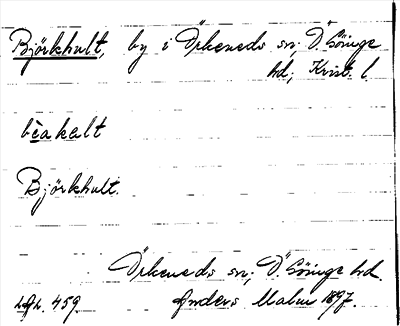 Björkhult, by i Örkeneds sn; Ö. Göinge
hd; Krist. l.
bèakalt
Björkhult.
Örkeneds sn; Ö. Göinge hd.
459. Anders Malm 1897.